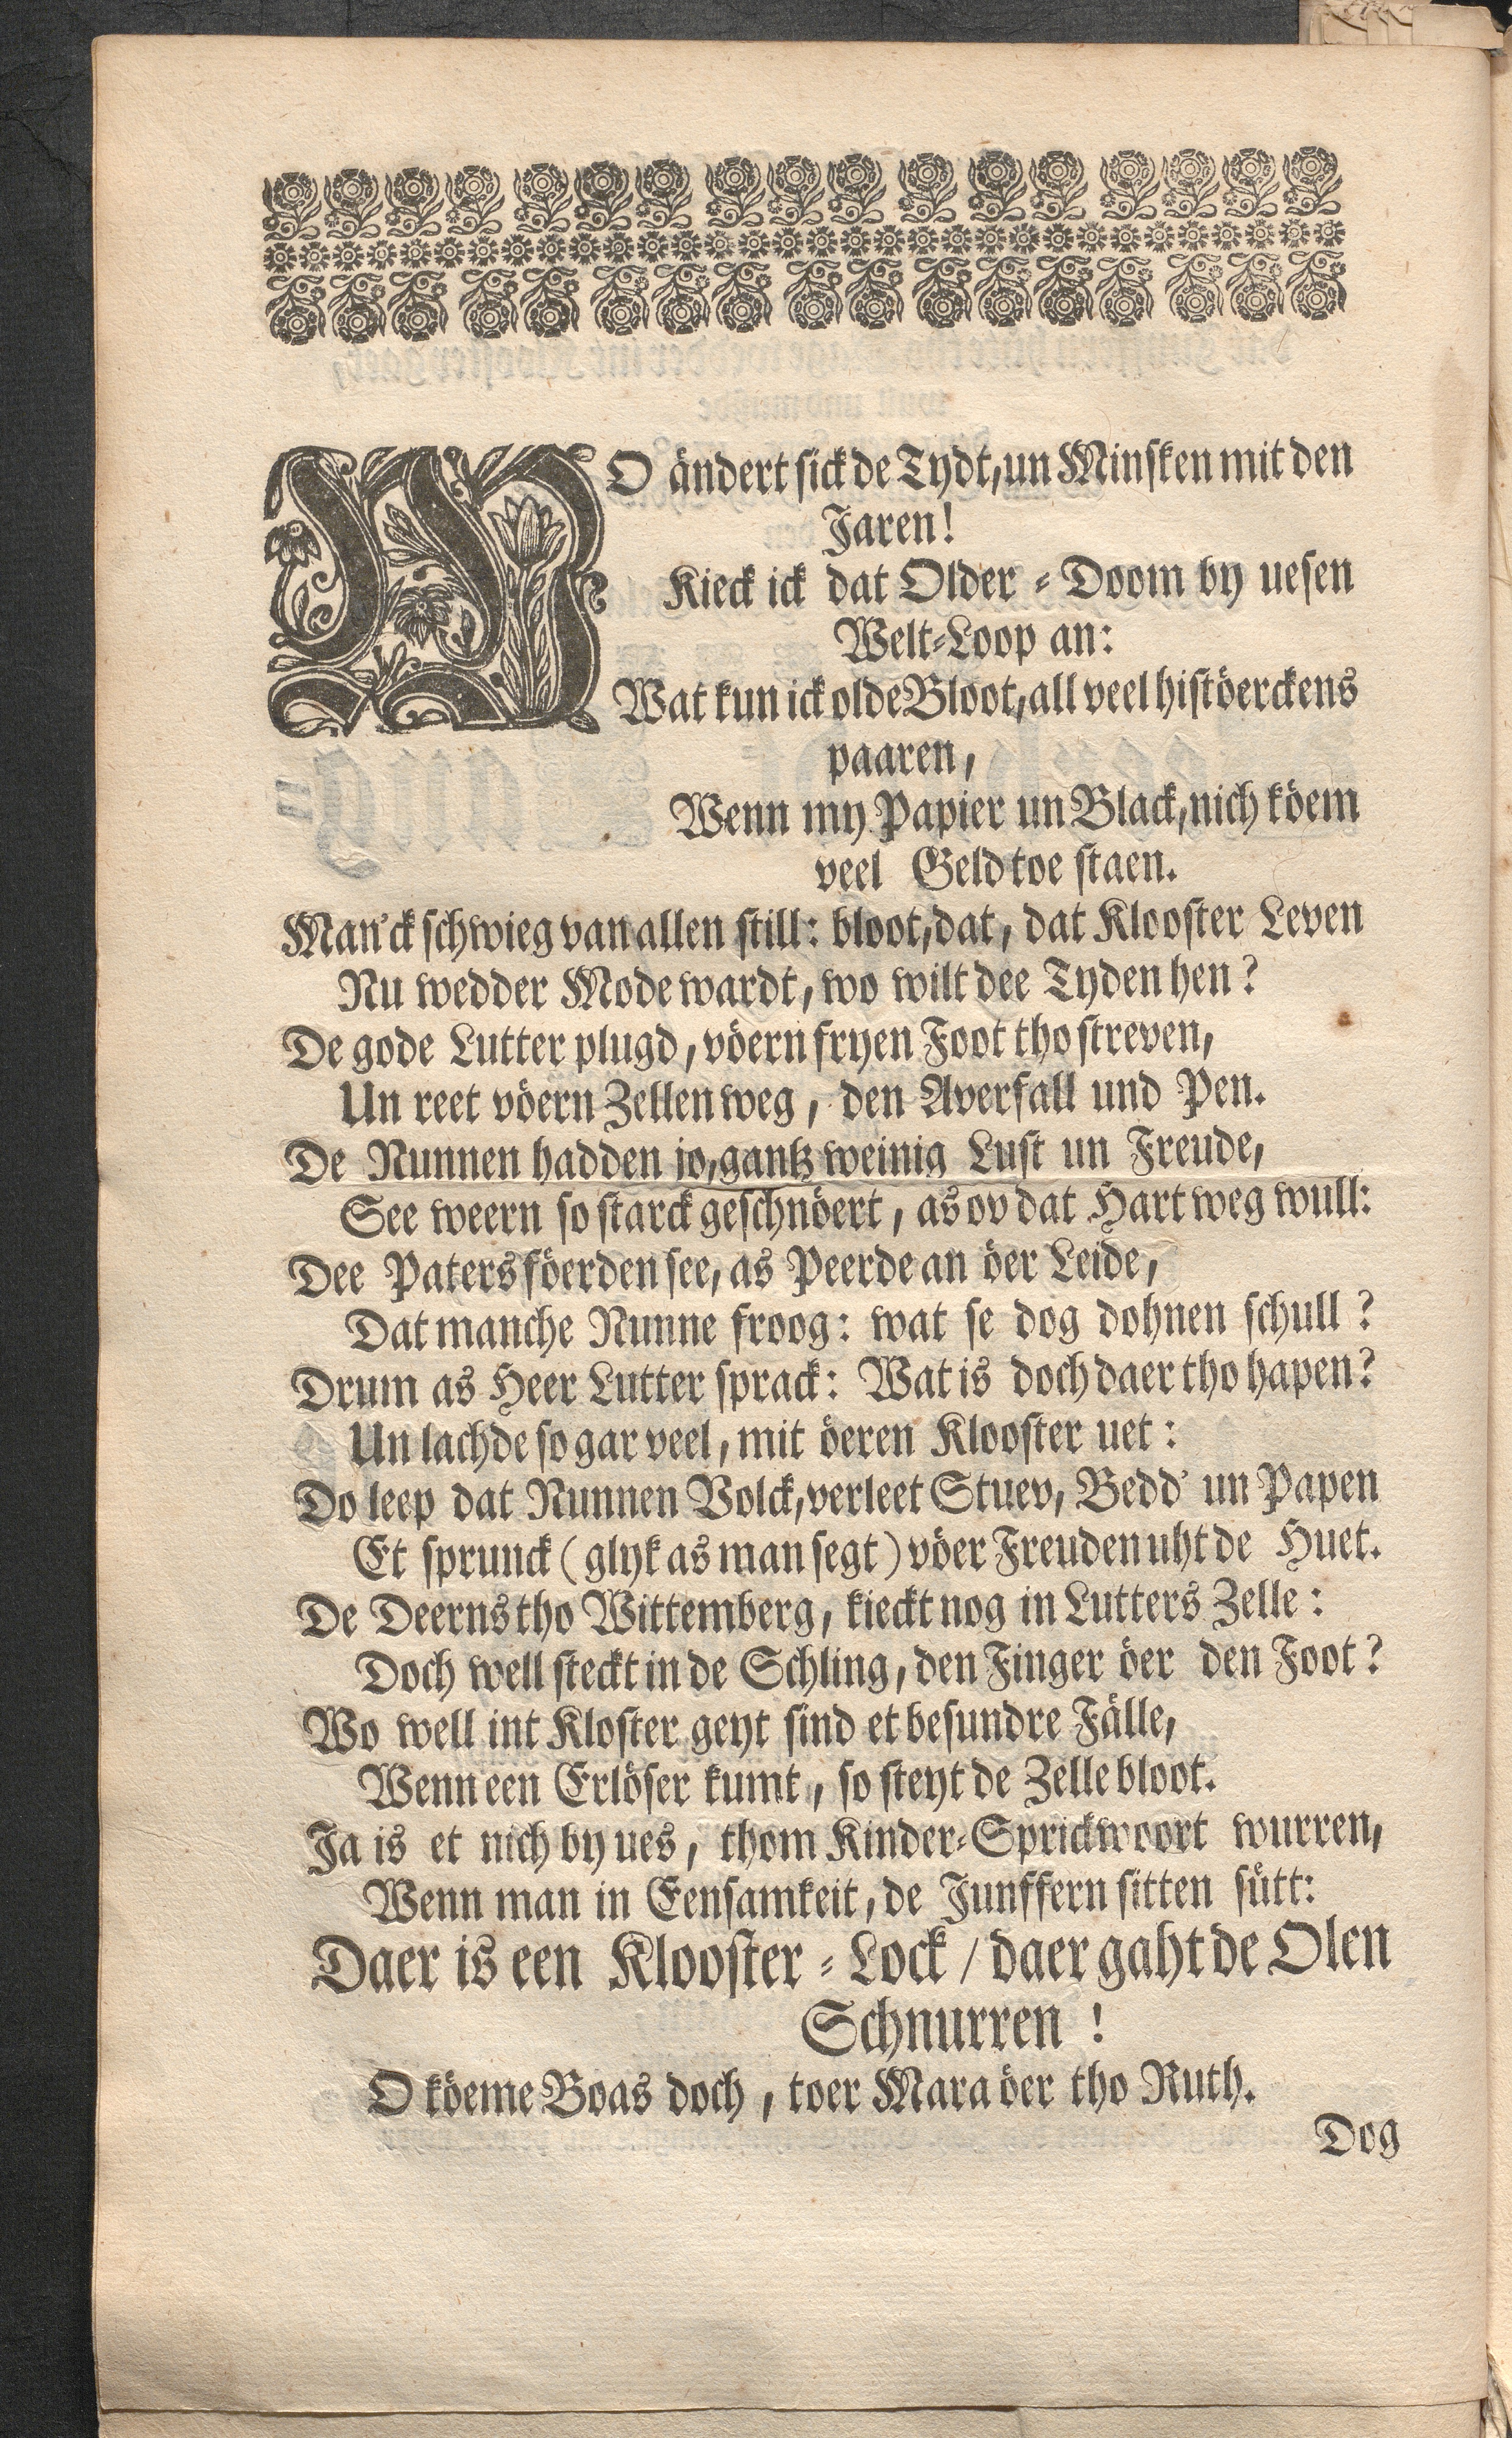 WO ändert sick de Tydt, un Minsken mit den
Jaren!
Kieck ick dat Older-Doom by uesen
Welt-Loop an:
Wat kun ick olde Bloot, all veel histöerckens
paaren,
Wenn my Papier un Black, nich köem
veel Geld toe staen.
Man'ck schwieg van allen still: bloot, dat, dat Klooster Leven
Nu wedder Mode wardt, wo wilt dee Tyden hen?
De gode Lutter plugd, vöern fryen Foot tho streven,
Un reet vöern Zellen weg, den Averfall und Pen.
De Nunnen hadden jo, gantz weinig Lust un Freude,
See weern so starck geschnöert, as ov dat Hart weg wull:
Dee Paters föerden see, as Peerde an öer Leide,
Dat manche Nunne froog: wat se dog dohnen schull?
Drum as Heer Lutter sprack: Wat is doch daer tho hapen?
Un lachde so gar veel, mit öeren Klooster uet:
Do leep dat Nunnen Volck, verleet Stuev, Bedd' un Papen
Et sprunck (glyk as man segt) vöer Freuden uht de Huet.
De Deerns tho Wittemberg, kieckt nog in Lutters Zelle:
Doch well steckt in de Schling, den Finger öer den Foot?
Wo well int Kloster geyt sind et besundre Fälle,
Wenn een Erlöser kumt, so steyt de Zelle bloot.
Ja is et nich by ues, thom Kinder-Sprickwoort wurren,
Wenn man in Eensamkeit, de Junffern sitten sütt:
Daer is een Klooster-Lock / daer gaht de Olen
Schnurren!
O köeme Boas doch, toer Mara öer tho Ruth.
Dog